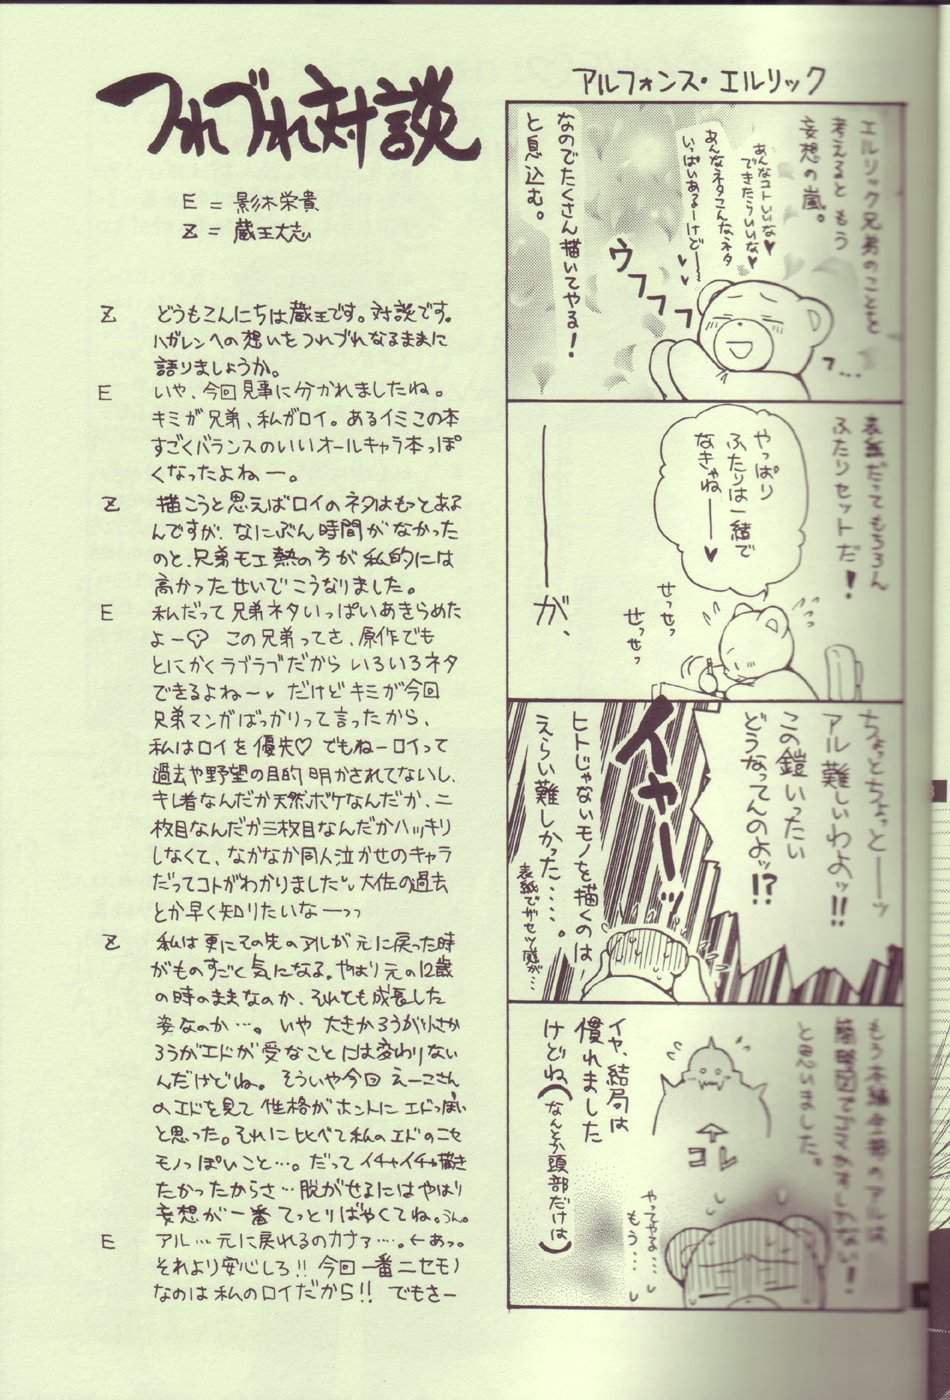 つれづれ対談
E = 影木栄貴
Z = 蔵王大志
Z どうもこんにちは蔵王です。対談です。
ハガレンへの想いをつれづれなるままに
語りましょうか。
E いや、今回見事に分かれましたね。
キミが兄弟、私がロイ。あるイミこの本
すごくバランスのいいオールキャラ本っぽ
くなったよねー。
Z 描こうと思えばロイのネタはもっとあるん
んですが、なにぶん時間がなかった
のと、兄弟モエ熱の方が私的には
高かったせいでこうなりました。
E 私だって兄弟ネタいっぱいあきらめた
よー この兄弟ってさ、原作でも
とにかくラブラブだからいろいろネタ
できるよねー♥ だけどキミが今回
兄弟マンガばっかりって言ったから、
私はロイを優先♡ でもねーロイって
過去や野望の目的明かされてないし、
キレ者なんだか天然ボケなんだか、二
枚目なんだか三枚目なんだかハッキリ
しなくて、なかなか同人泣かせのキャラ
だってコトがわかりました 大佐の過去
とか早く知りたいなーっっ
Z 私は更にその先のアルが元に戻った時
がものすごく気になる。やはり元の12歳
の時のままなのか、それとも成長した
姿なのか…。いや大きかろうが小さか
ろうがエドが受なことには変わりない
んだけどね。そういや今回えーこさん
のエドを見て性格がホントにエドっぽい
と思った。それに比べて私のエドのニセ
モノっぽいこと…。だってイチャイチャ描き
たかったからさ…脱がせるにはやはり
妄想が一番てっとりばやくてね。うん。
E アル…元に戻れるのカナァ…。←あっ。
それより安心しろ!!今回一番ニセモノ
なのは私のロイだから!! でもさー
アルフォンス・エルリック
エルリック兄弟のことを
考えるともう
妄想の嵐。
あんなコトいいな♥
できたらいいな♥
あんなネタこんなネタ
いっぱいあるーけどー
ウフフフフ
フ…
なのでたくさん描いてやる!
と意込む。
表紙だってもちろん
ふたりセットだ!
やっぱり
ふたりは一緒で
なきゃねー♥
せっせっ
せっせっ
――が、
ちょっとちょっとーッ
アル難しいわよッ!!
この鎧いったい
どうなってんのよッ!?
イヤーーッ
ヒトじゃないモノを描くのは
えらい難しかった……。
もう本編全部のアルは
簡略図でゴマかすしかない!
と思いました。
コレ
やってやる…
もう…
イヤ、結局は
慣れました
けどね(なんとか頭部だけは)